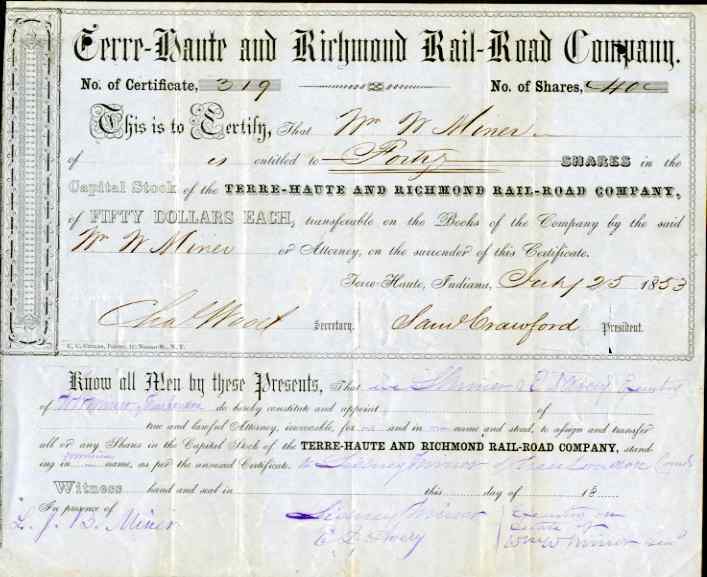 Terre-Haute and Richmond Rail-Road Company.
No. of Certificate, 319 No. of Shares, 40
This is to Certify, That Wm W Miner
of is entitled to Forty SHARES in the
Capital Stock of the TERRE-HAUTE AND RICHMOND RAIL-ROAD COMPANY,
of FIFTY DOLLARS EACH, transferable on the Books of the Company by the said
Wm W Miner or Attorney, on the surrender of this Certificate.
Terre-Haute, Indiana, July 25 1853
Chas Wood Secretary. Saml Crawford President.
Know all Men by these Presents, That
of do hereby constitute and appoint of
true and lawful Attorney, irrevocable, for and in name and stead, to assign and transfer
all or any Shares in the Capital Stock of the TERRE-HAUTE AND RICHMOND RAIL-ROAD COMPANY, stand-
ing in name, as per the annexed Certificate. to Sidney Miner of New London Conn
Witness hand and seal in this day of 18
In presence of
L. J. B. Miner Sidney Miner
Avery
estate of
Wm W Miner